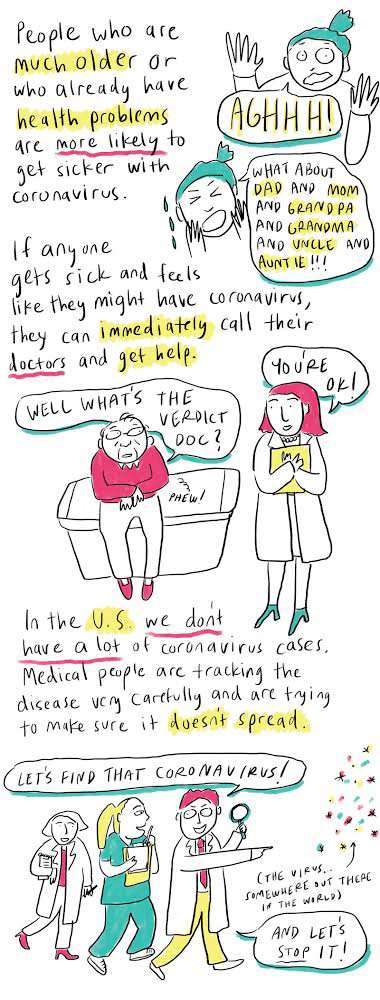 People who are
much older or
who already have
health problems
are more likely to
get sicker with
coronavirus.
AGHHH!
WHAT ABOUT
DAD AND MOM
AND GRANDPA
AND GRANDMA
AND UNCLE AND
AUNTIE!!!
If anyone
gets sick and feels
like they might have coronavirus,
they can immediately call their
doctors and get help.
WELL WHAT'S THE
VERDICT
DOC?
YOU'RE
OK!
PHEW!
In the U.S. we don't
have a lot of coronavirus cases.
Medical people are tracking the
disease very carefully and are trying
to make sure it doesn't spread.
LET'S FIND THAT CORONAVIRUS!
(THE VIRUS...
SOMEWHERE OUT THERE
IN THE WORLD)
AND LET'S
STOP IT!